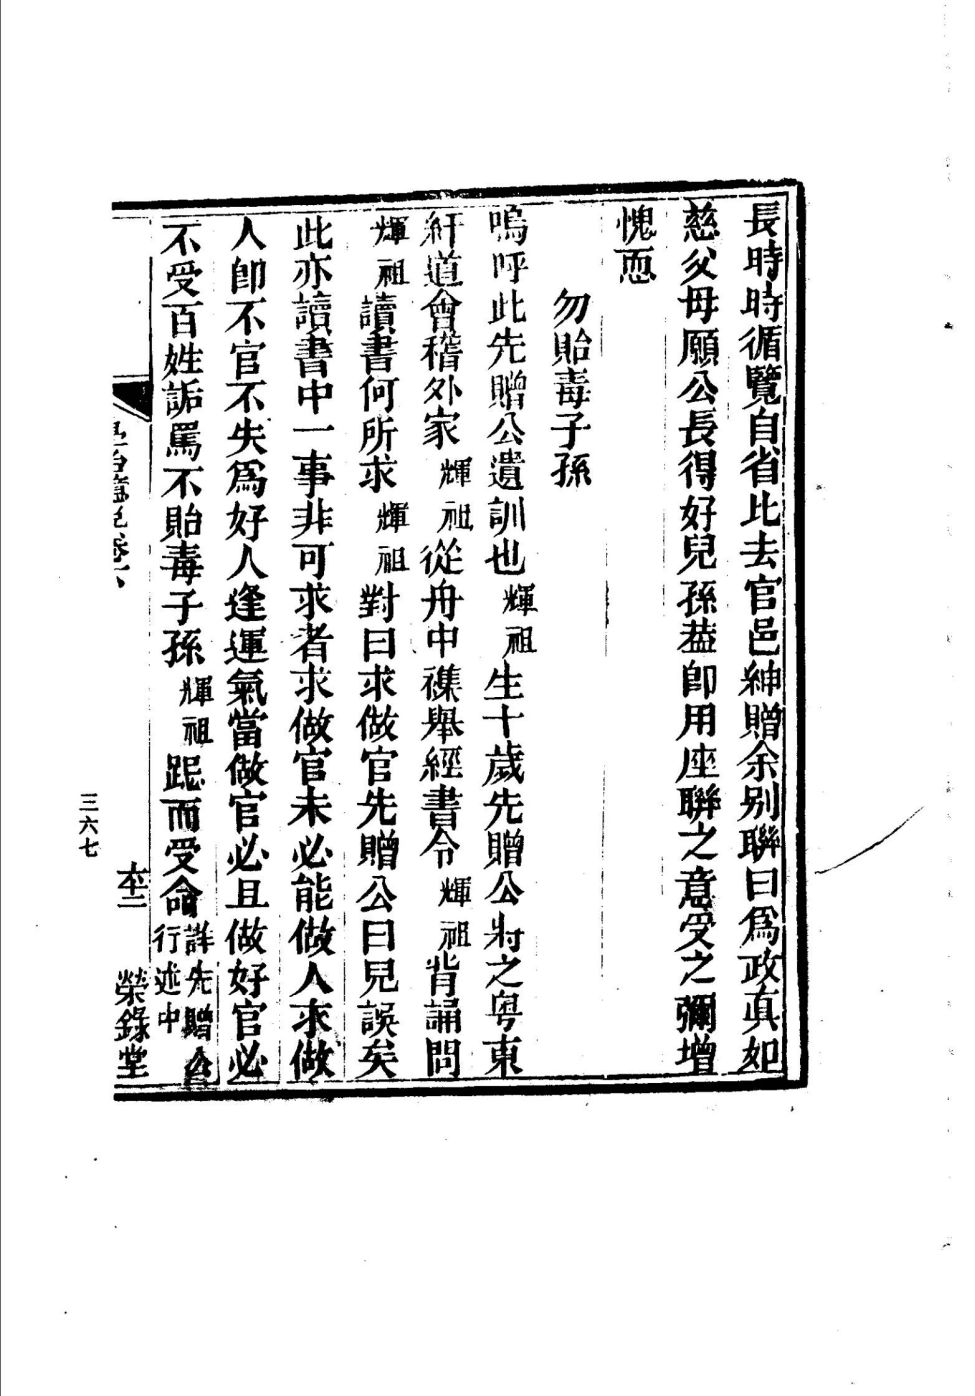 長時時循覽自省比去官邑紳贈余別聯曰爲政真如
慈父母願公長得好兒孫葢卽用座聯之意受之彌增
愧恧
勿貽毒子孫
嗚呼此先贈公遺訓也輝祖生十歲先贈公將之粵東
紆道會稽外家輝祖從舟中襍舉經書令輝祖背誦問
輝祖讀書何所求輝祖對曰求做官先贈公曰兒誤矣
此亦讀書中一事非可求者求做官未必能做人求做
人卽不官不失爲好人逢運氣當做官必且做好官必
不受百姓詬罵不貽毒子孫輝祖跽而受命詳先贈公
行述中
卷六
榮錄堂
三六七